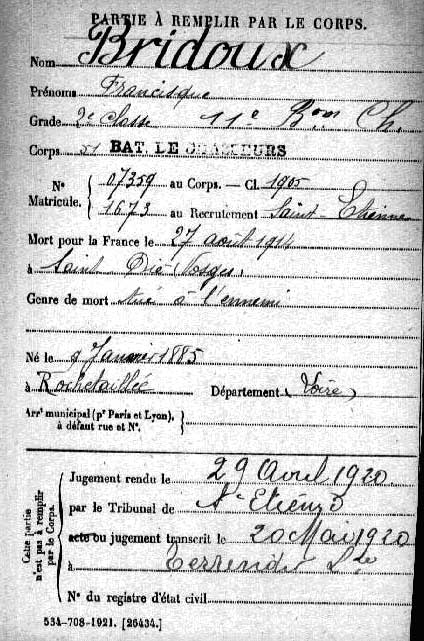 PARTIE À REMPLIR PAR LE CORPS.
Nom Bridoux
Prénoms Francisque
Grade 2e classe 11e Bon Ch.
Corps 51 BAT. DE CHASSEURS
Nº Matricule. 07359 au Corps. — Cl. 1905
1673 au Recrutement Saint-Etienne
Mort pour la France le 27 août 1914
à Saint Dié (Vosges)
Genre de mort tué à l'ennemi
Né le 9 Janvier 1885
à Rochetaillée Département (Loire)
Arrt municipal (pr Paris et Lyon),
à défaut rue et Nº.
Cette partie n'est pas à remplir par le Corps.
Jugement rendu le 29 Avril 1920
par le Tribunal de St Etienne
acte ou jugement transcrit le 20 Mai 1920
à
Nº du registre d'état civil
534-708-1921. [26434.]